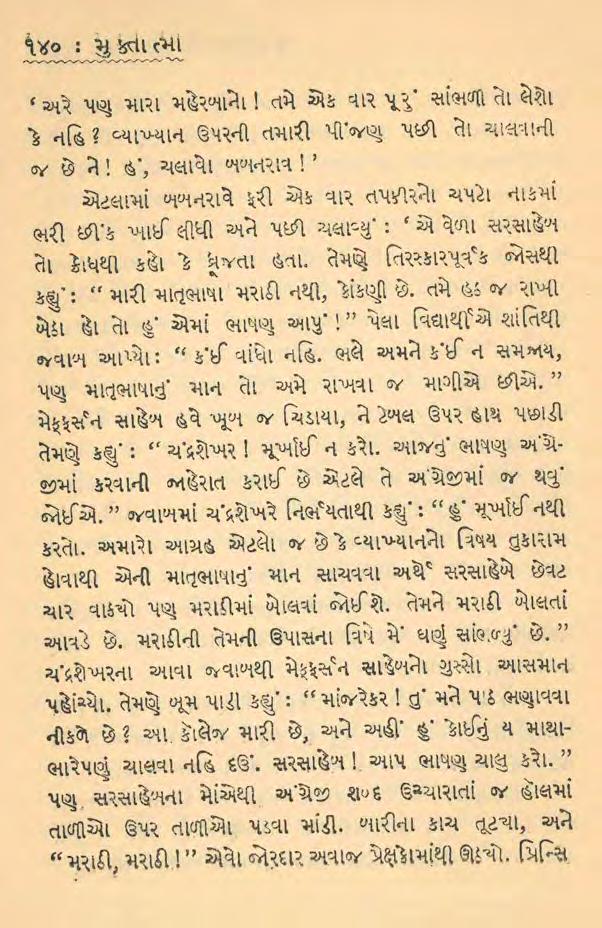 ૧૪૦ : મુક્તાત્મા
‘ અરે પણ મારા મહેરબાનો ! તમે એક વાર પૂરું સાંભળી તો લેશો
કે નહિ ? વ્યાખ્યાન ઉપરની તમારી પીંજણ પછી તો ચાલવાની
જ છે ને ! હં, ચલાવો બબનરાવ ! ’
એટલામાં બબનરાવે ફરી એક વાર તપકીરનો ચપટો નાકમાં
ભરી છીંક ખાઈ લીધી અને પછી ચલાવ્યું : ‘ એ વેળા સરસાહેબ
તો ક્રોધથી કહો કે ધ્રૂજતા હતા. તેમણે તિરસ્કારપૂર્વક જોસથી
કહ્યું : “ મારી માતૃભાષા મરાઠી નથી, કોંકણી છે. તમે હઠ જ રાખી
બેઠા હો તો હું એમાં ભાષણ આપું ! ” પેલા વિદ્યાર્થીએ શાંતિથી
જવાબ આપ્યો : “ કંઈ વાંધો નહિ. ભલે અમને કંઈ ન સમજાય,
પણ માતૃભાષાનું માન તો અમે રાખવા જ માગીએ છીએ. ”
મેકફર્સન સાહેબ હવે ખૂબ જ ચિડાયા, ને ટેબલ ઉપર હાથ પછાડી
તેમણે કહ્યું : “ ચંદ્રશેખર ! મૂર્ખાઈ ન કરો. આજનું ભાષણ અંગ્રે-
જીમાં કરવાની જાહેરાત કરાઈ છે એટલે તે અંગ્રેજીમાં જ થવું
જોઈએ. ” જવાબમાં ચંદ્રશેખરે નિર્ભયતાથી કહ્યું : “ હું મૂર્ખાઈ નથી
કરતો. અમારો આગ્રહ એટલો જ છે કે વ્યાખ્યાનનો વિષય તુકારામ
હોવાથી એની માતૃભાષાનું માન સાચવવા અર્થે સરસાહેબે છેવટ
ચાર વાક્યો પણ મરાઠીમાં બોલવાં જોઈશે. તેમને મરાઠી બોલતાં
આવડે છે. મરાઠીની તેમની ઉપાસના વિષે મેં ઘણું સાંભળ્યું છે. ”
ચંદ્રશેખરના આવા જવાબથી મેકફર્સન સાહેબનો ગુસ્સો આસમાન
પહોંચ્યો. તેમણે બૂમ પાડી કહ્યું : “ માંજરેકર ! તું મને પાઠ ભણાવવા
નીકળે છે ? આ કૉલેજ મારી છે, અને અહીં હું કોઈનું ય માથા-
ભારેપણું ચાલવા નહિ દઉં. સરસાહેબ ! આપ ભાષણ ચાલુ કરો. ”
પણ સરસાહેબના મોંએથી અંગ્રેજી શબ્દ ઉચ્ચારાતાં જ હૉલમાં
તાળીઓ ઉપર તાળીઓ પડવા માંડી. બારીના કાચ તૂટ્યા, અને
“ મરાઠી, મરાઠી ! ” એવો જોરદાર અવાજ પ્રેક્ષકોમાંથી ઊઠ્યો. પ્રિન્સિ